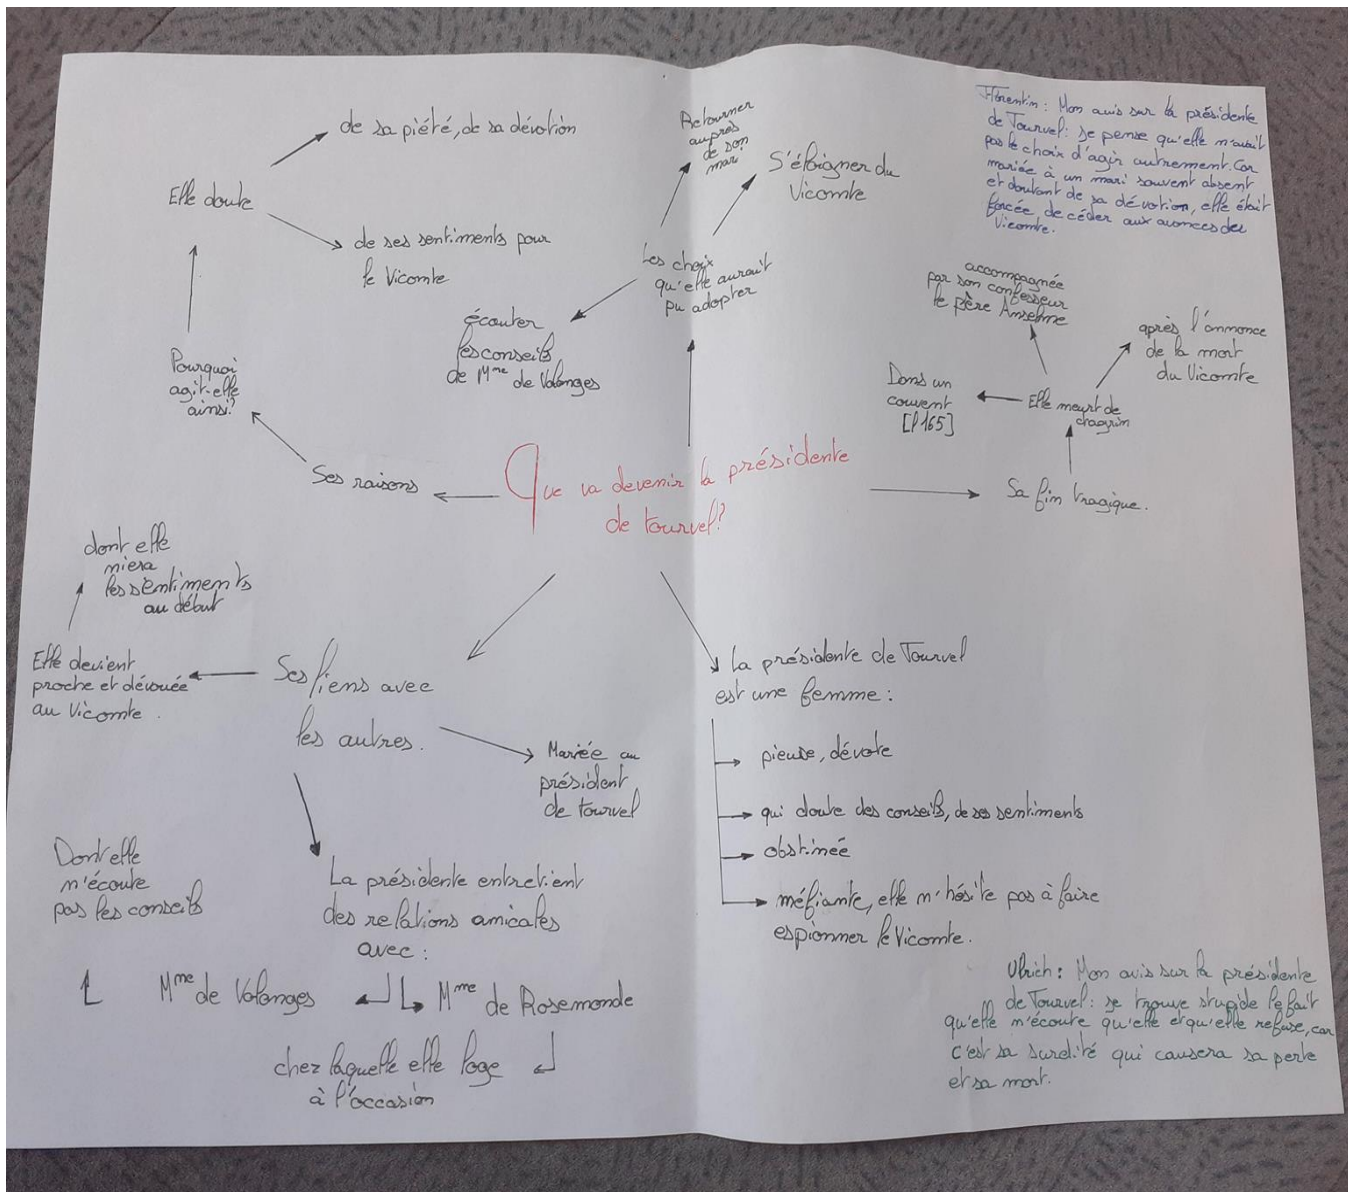 Que va devenir la présidente
de tourvel?
Ses raisons
Pourquoi
agit-elle
ainsi?
Elle doute
de sa piété, de sa dévotion
de ses sentiments pour
le Vicomte
Les choix
qu'elle aurait
pu adopter
Retourner
auprès
de son
mari
S'éloigner du
Vicomte
écouter
les conseils
de Mme de Volanges
Florentin : Mon avis sur la présidente
de Tourvel : je pense qu'elle n'avait
pas le choix d'agir autrement. Car
mariée à un mari souvent absent
et doutant de sa dévotion, elle était
forcée de céder aux avances du
Vicomte.
Sa fin tragique.
Elle meurt de
chagrin
accompagnée
par son confesseur
le père Anselme
après l'annonce
de la mort
du Vicomte
Dans un
couvent
[l165]
Ses liens avec
les autres.
Elle devient
proche et dévouée
au Vicomte.
dont elle
niera
les sentiments
au début
Mariée au
président
de tourvel
La présidente entretient
des relations amicales
avec :
Mme de Volanges
Mme de Rosemonde
Dont elle
n'écoute
pas les conseils
chez laquelle elle loge
à l'occasion
La présidente de Tourvel
est une femme :
pieuse, dévote
qui doute des conseils, de ses sentiments
obstinée
méfiante, elle n'hésite pas à faire
espionner le Vicomte.
Ulrich : Mon avis sur la présidente
de Tourvel : je trouve stupide le fait
qu'elle n'écoute qu'elle et qu'elle refuse, car
c'est sa surdité qui causera sa perte
et sa mort.